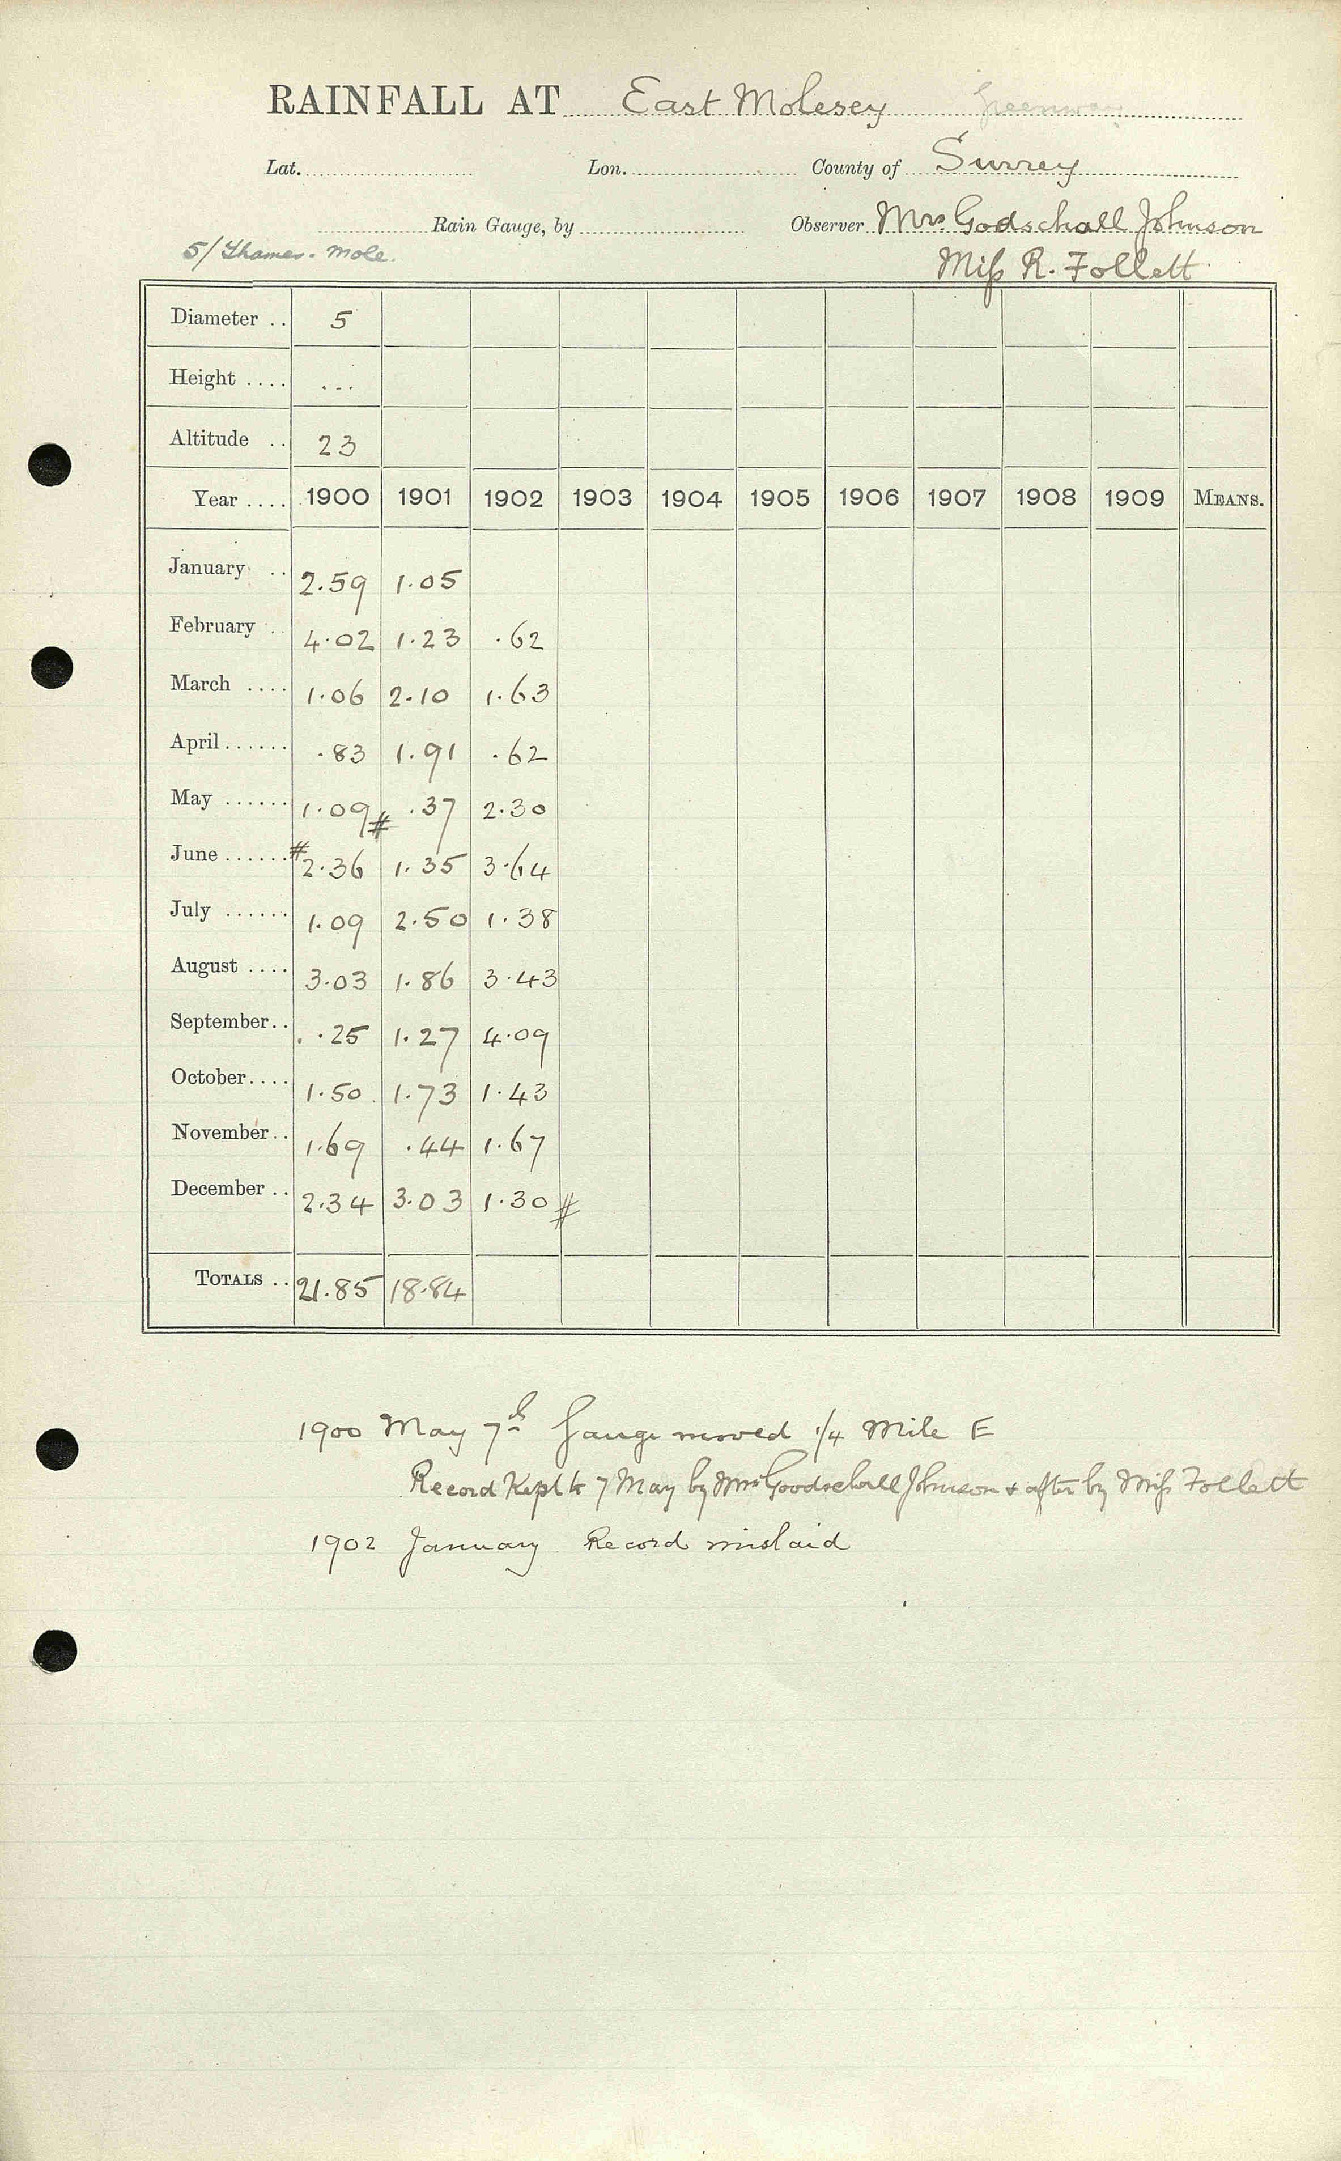 RAINFALL AT East Molesey Greenway
Lat. Lon. County of Surrey
Rain Gauge, by Observer Mrs Godschall Johnson
5/ Thames. Mole. Miss R. Follett
Diameter .. 5
Height .... ...
Altitude .. 23
Year .... 1900 1901 1902 1903 1904 1905 1906 1907 1908 1909 MEANS.
January .. 2.59 1.05
February .. 4.02 1.23 .62
March .... 1.06 2.10 1.63
April...... .83 1.91 .62
May ...... 1.09# .37 2.30
June...... #2.36 1.35 3.64
July ...... 1.09 2.50 1.38
August .... 3.03 1.86 3.43
September.. .25 1.27 4.09
October.... 1.50 1.73 1.43
November.. 1.69 .44 1.67
December .. 2.34 3.03 1.30#
TOTALS .. 21.85 18.84
1900 May 7th Gauge moved 1/4 Mile E
Record Kept to 7 May by Mrs Goodschall Johnson & after by Miss Follett
1902 January Record mislaid